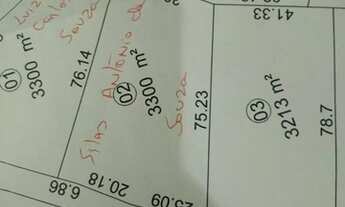 Luiz
Carlos
Souza
01
3300 m²
76.14
Silas Antônio de
Souza
02
3300 m²
75.23
41.33
03
3213 m²
78.7
6.86
20.18
23.09